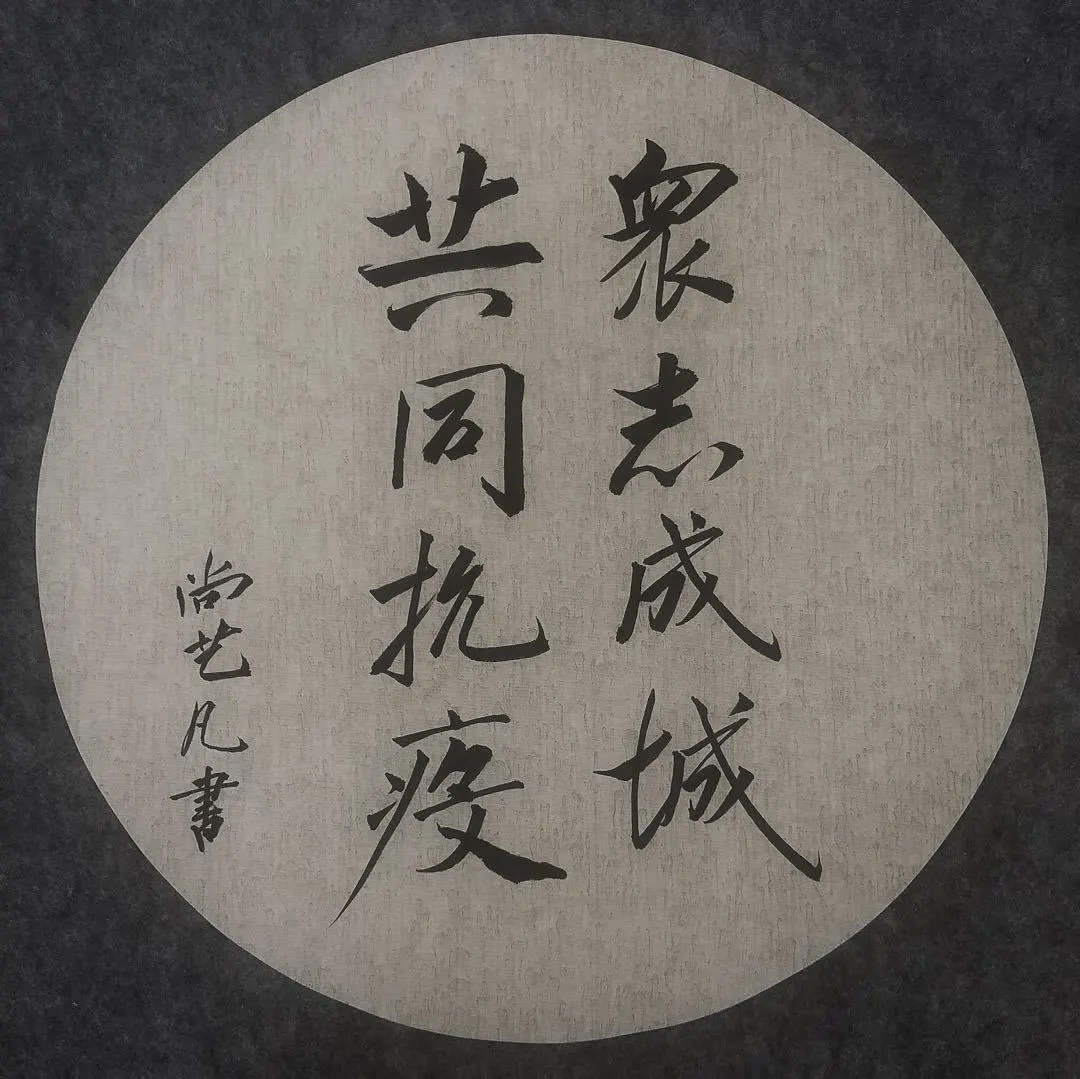 眾志成城
共同抗疫
尚艺凡書